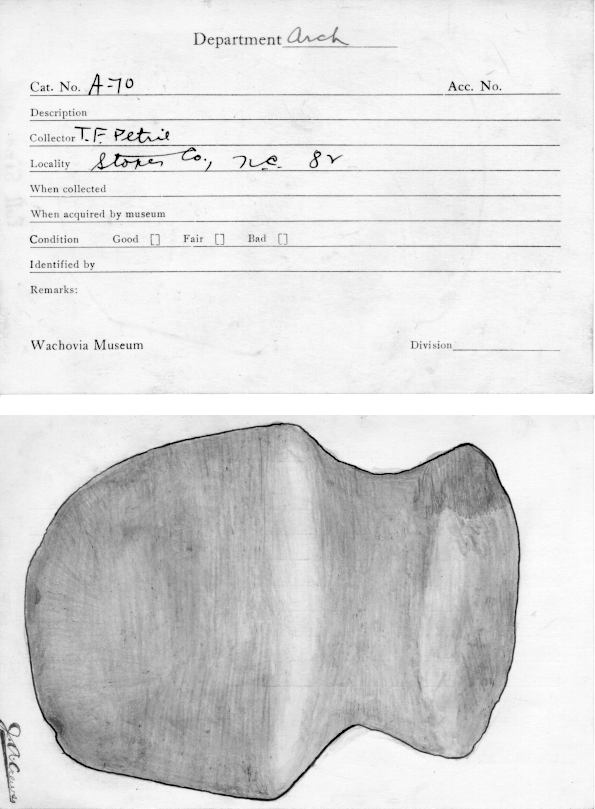 Department Arch
Cat. No. A-70 Acc. No.
Description
Collector T.F. Petrie
Locality Stokes Co., N.C. 82
When collected
When acquired by museum
Condition Good [] Fair [] Bad []
Identified by
Remarks:
Wachovia Museum Division